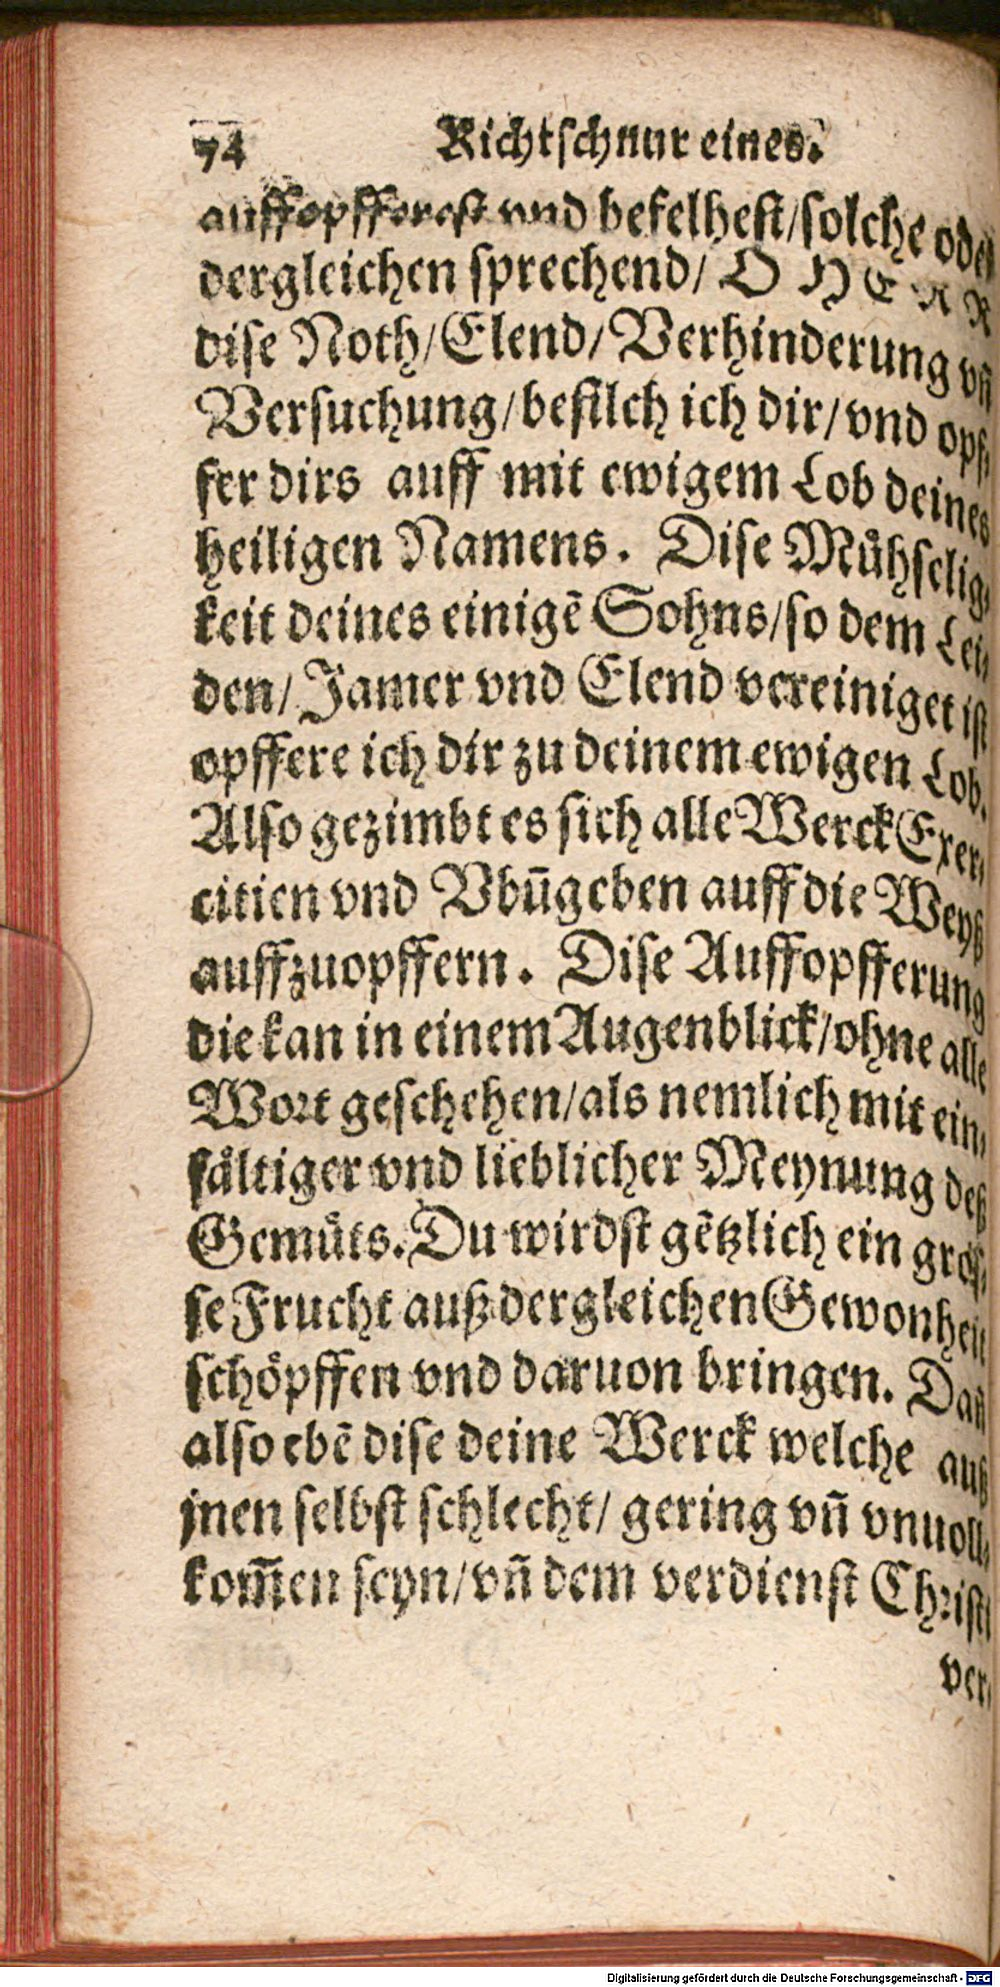 74 Richtschnur eines.
auffopfferest vnd befelhest/solche oder
dergleichen sprechend/ O H E R R
dise Noth/Elend/Verhinderung vñ
Versuchung/befilch ich dir/vnd opf-
fer dirs auff mit ewigem Lob deines
heiligen Namens. Dise Mühselig-
keit deines einigẽ Sohns/so dem Lei-
den/Jamer vnd Elend vereiniget ist
opffere ich dir zu deinem ewigen Lob.
Also gezimbt es sich alle Werck Exer-
citien vnd Vbũgeben auff die Weyß
auffzuopffern. Dise Auffopfferung
die kan in einem Augenblick/ohne alle
Wort geschehen/als nemlich mit ein-
fältiger vnd lieblicher Meynung deß
Gemüts. Du wirdst gẽtzlich ein gros-
se Frucht auß dergleichen Gewonheit
schöpffen vnd daruon bringen. Dañ
also ebẽ dise deine Werck welche auß
jnen selbst schlecht/ gering vñ vnuoll-
kom̃en seyn/vñ dem verdienst Christi
ver-
Digitalisierung gefördert durch die Deutsche Forschungsgemeinschaft - DFG